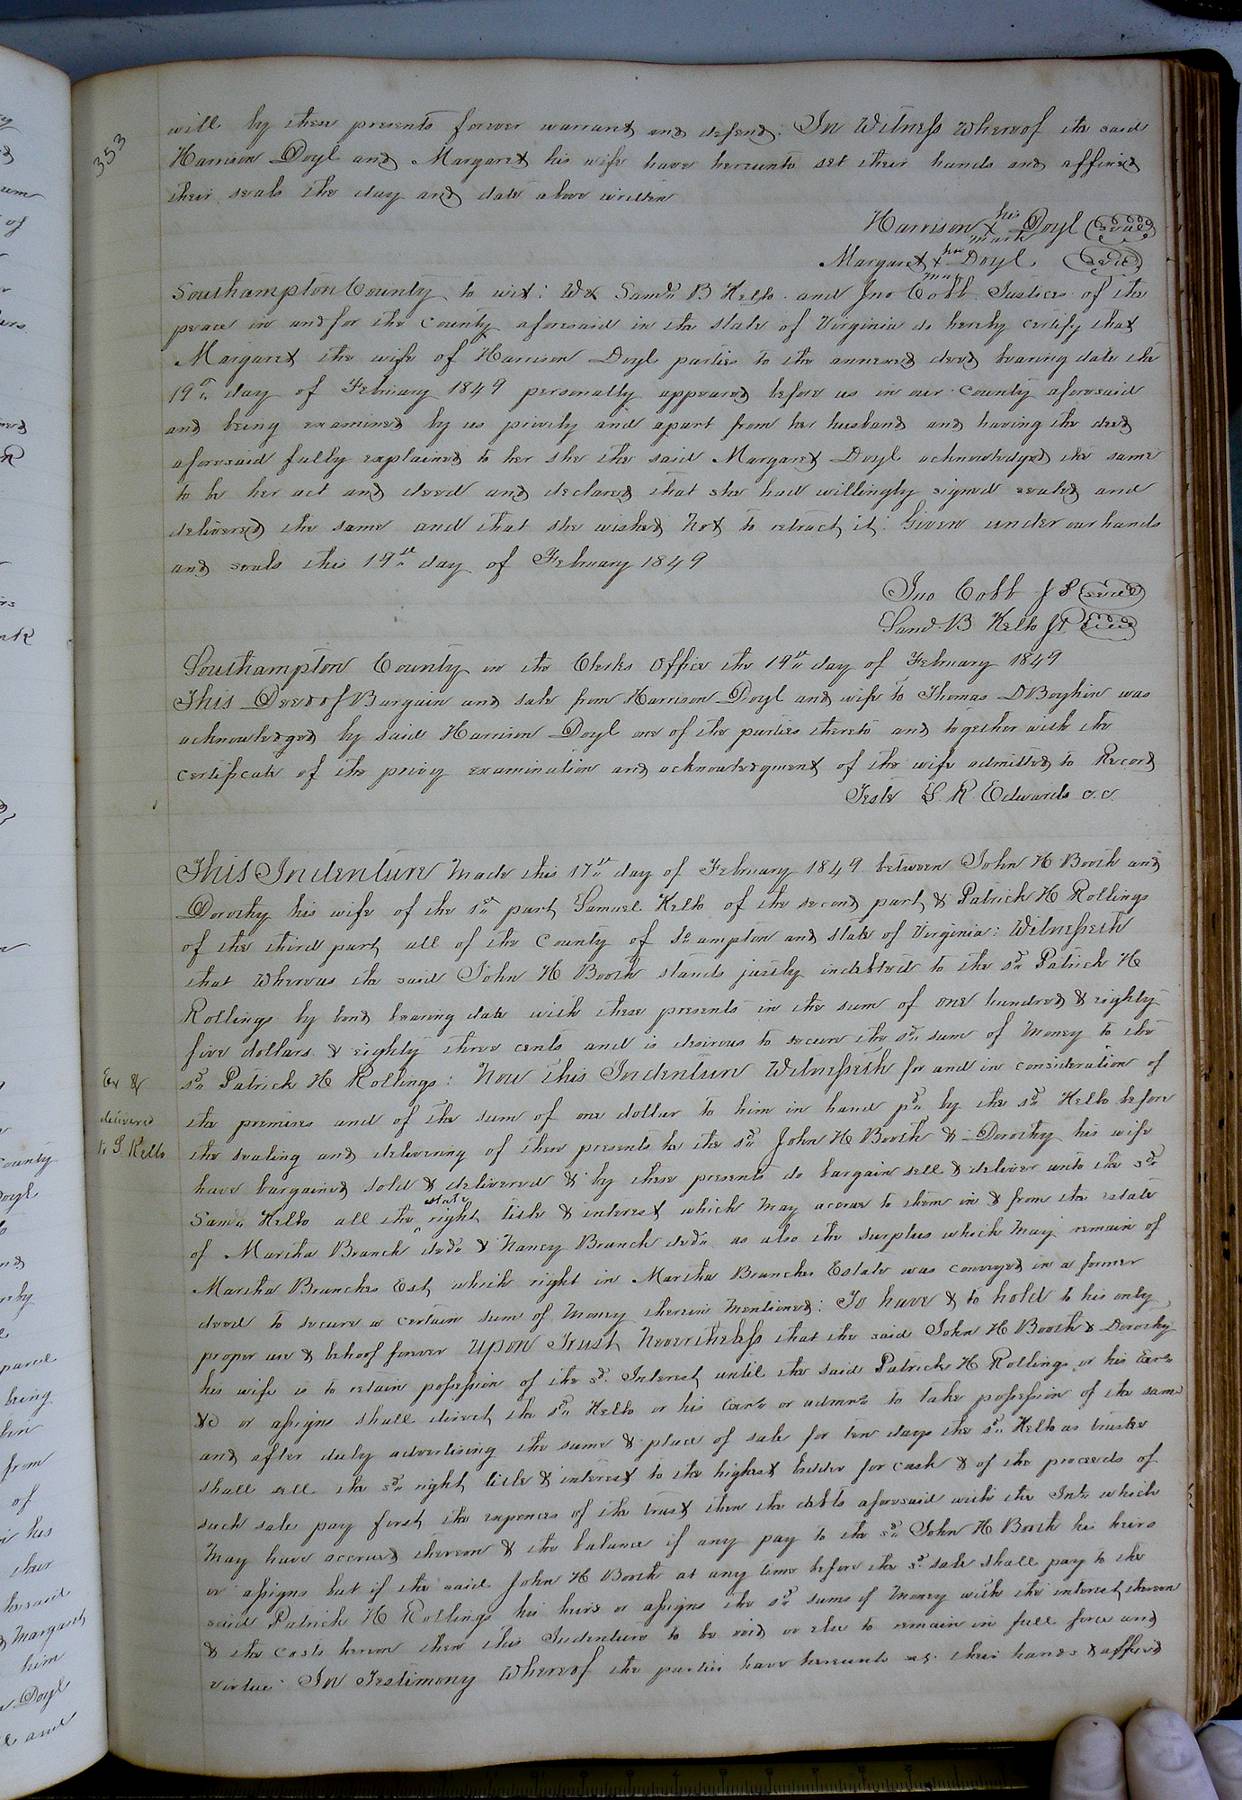 353
will by these presents forever warrant and defend. In Witness Whereof the said
Harrison Doyl and Margaret his wife have hereunto set their hands and affixed
their seals the day and date above written
Harrison his X mark Doyl (seal)
Margaret her X mark Doyl (seal)
Southampton County to wit: We Saml B Kello and Jno Cobb Justices of the
peace in and for the County aforesaid in the state of Virginia do hereby certify that
Margaret the wife of Harrison Doyl parties to the annexed deed bearing date the
19th day of February 1849 personally appeared before us in our County aforesaid
and being examined by us privily and apart from her husband and having the deed
aforesaid fully explained to her she the said Margaret Doyl acknowledged the same
to be her act and deed and declared that she had willingly signed sealed and
delivered the same and that she wished not to retract it. Given under our hands
and seals this 19th day of February 1849
Jno Cobb J P (seal)
Saml B Kello J P (seal)
Southampton County in the Clerks Office the 19th day of February 1849
This Deed of Bargain and sale from Harrison Doyl and wife to Thomas D Boykin was
acknowledged by said Harrison Doyl one of the parties thereto and together with the
certificate of the privy examination and acknowledgment of the wife admitted to Record
Teste L. R. Edwards c.c.
This Indenture Made this 17th day of February 1849 between John H Booth and
Dorothy his wife of the 1st part Samuel Kello of the second part & Patrick H Rollings
of the third part all of the County of So ampton and state of Virginia: Witnesseth
that Whereas the said John H Booth stands justly indebted to the sd Patrick H
Rollings by bond bearing date with these presents in the sum of one hundred & eighty
five dollars & eighty three cents and is desirous to secure the sd sum of Money to the
sd Patrick H Rollings: Now this Indenture Witnesseth for and in consideration of
Ex &
delivered
to S Kello
the premises and of the sum of one dollar to him in hand pd by the sd Kello before
the sealing and delivering of these presents he the sd John H Booth & Dorothy his wife
have bargained sold & delivered & by these presents do bargain sell & deliver unto the sd
Saml Kello all the right title & interest which May accrue to them in & from the estate
of Martha Branch decd & Nancy Branch decd as also the surplus which May remain of
Martha Branches Est, which right in Martha Branches Estate was conveyed in a former
deed to secure a certain sum of Money therein Mentioned: To have & to hold to his only
proper use & behoof forever Upon Trust Nevertheless that the said John H Booth & Dorothy
his wife is to retain possession of the sd Interest until the said Patrick H Rollings or his Exrs
&c or assigns shall direct the sd Kello or his Exrs or admrs to take possession of the same
and after duly advertising the same & place of sale for ten days the sd Kello as trustee
shall sell the sd right title & interest to the highest bidder for cash & of the proceeds of
such sale pay first the expences of the trust then the debts aforesaid with the Int. which
May have accrued thereon & the balance if any pay to the sd John H Booth his heirs
or assigns but if the said John H Booth at any time before the sd sale shall pay to the
said Patrick H Rollings his heirs or assigns the sd sums of Money with the interest thereon
& the costs hereon then this Indenture to be void or else to remain in full force and
virtue. In Testimony Whereof the parties have hereunto set their hands & affixed